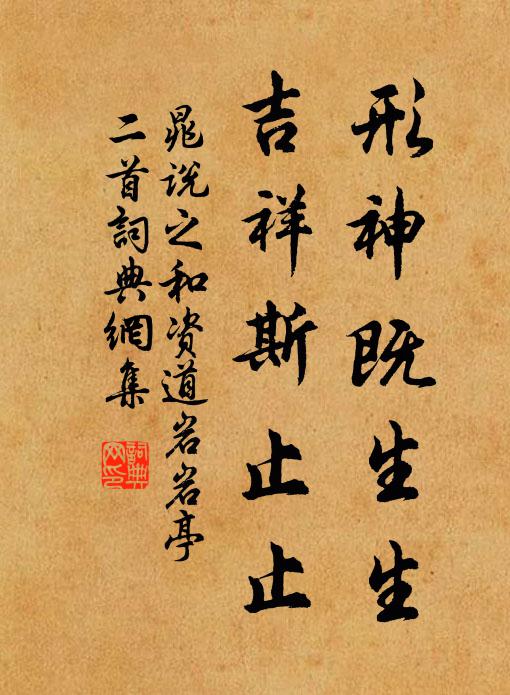 形神既生生
吉祥斯止止
晁说之和资道岩岩亭
二首詞典網集
詞典网印